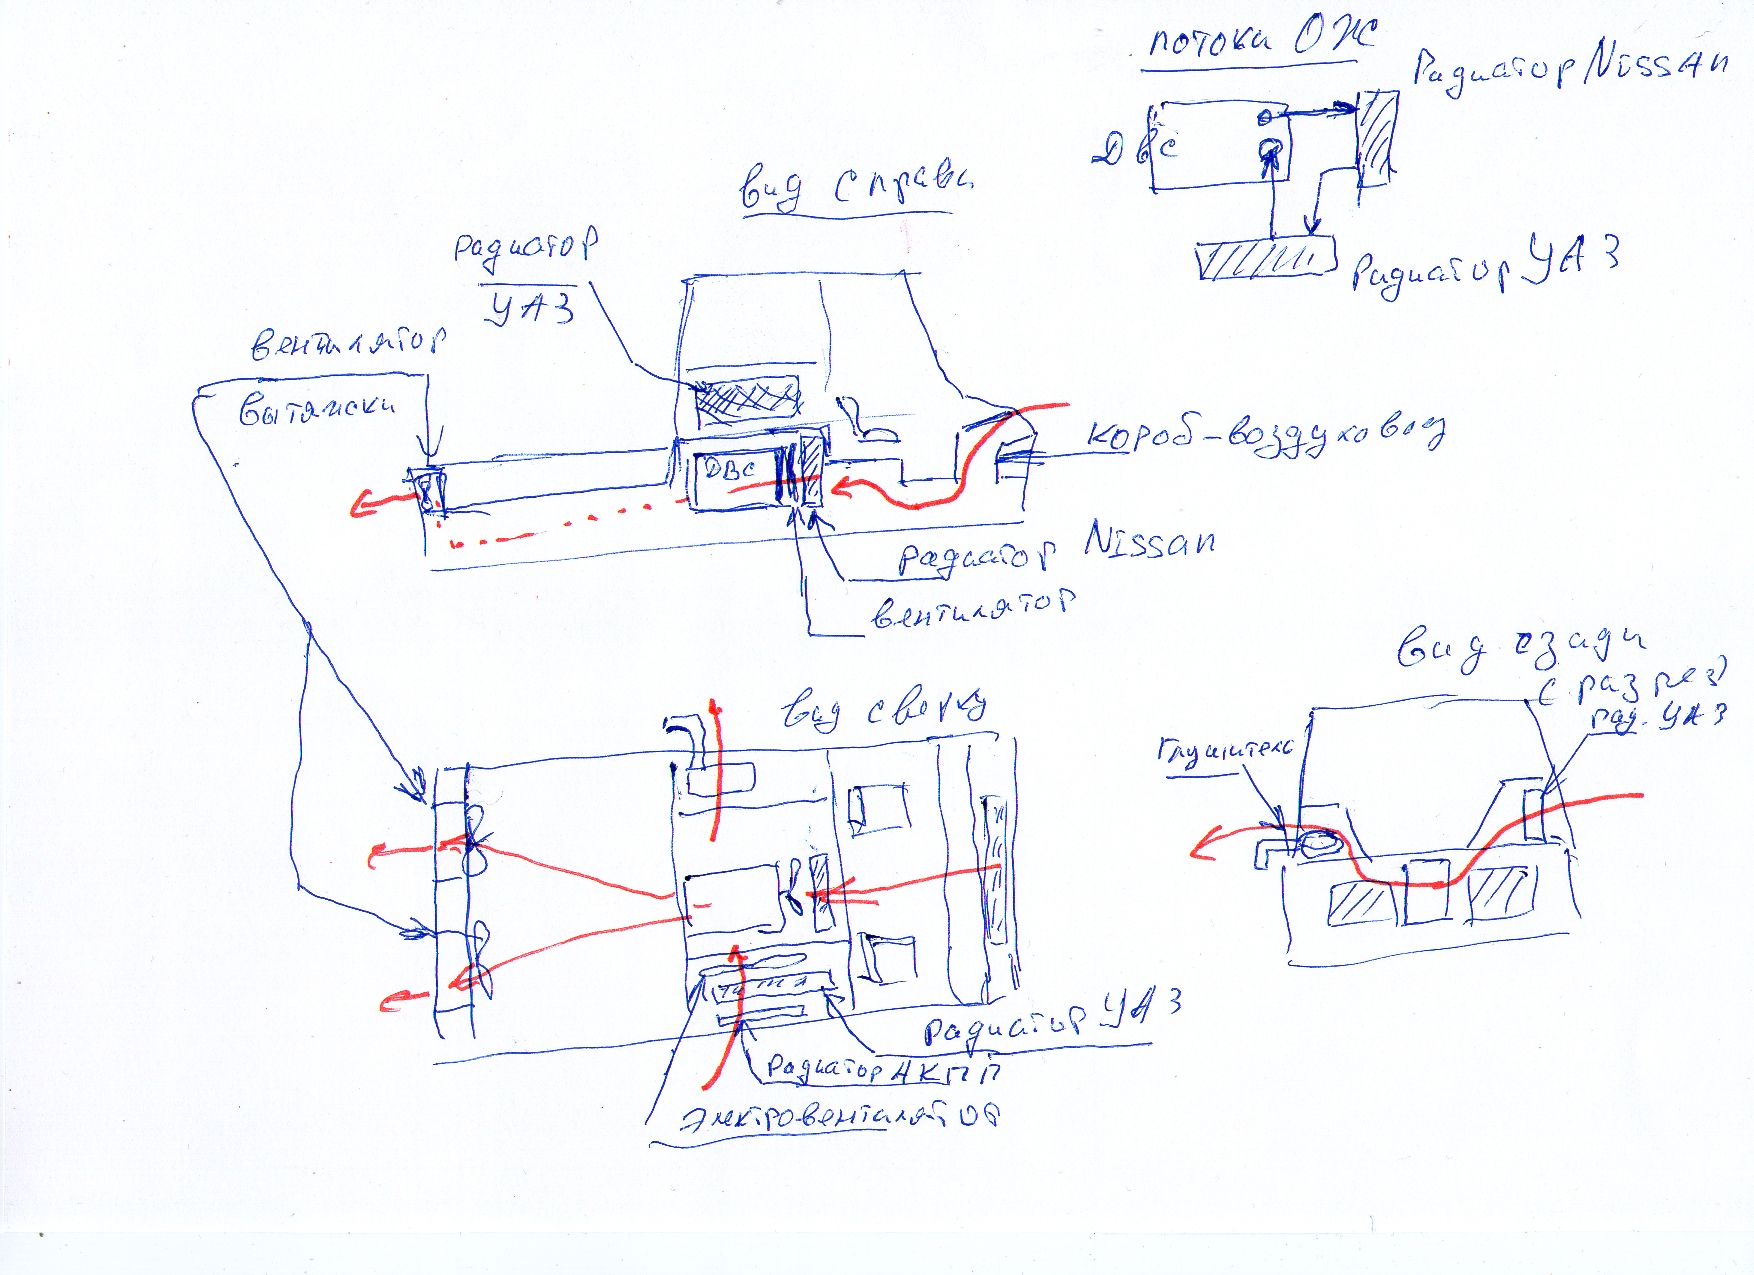 потоки ОЖ
Радиатор Nissan
ДВС
Радиатор УАЗ
вид справа
радиатор
УАЗ
вентилятор
вытяжки
ДВС
короб-воздуховод
радиатор Nissan
вентилятор
вид сверху
Радиатор УАЗ
Радиатор АКПП
Электровентилятор
вид сзади
с разрез
рад. УАЗ
Глушитель